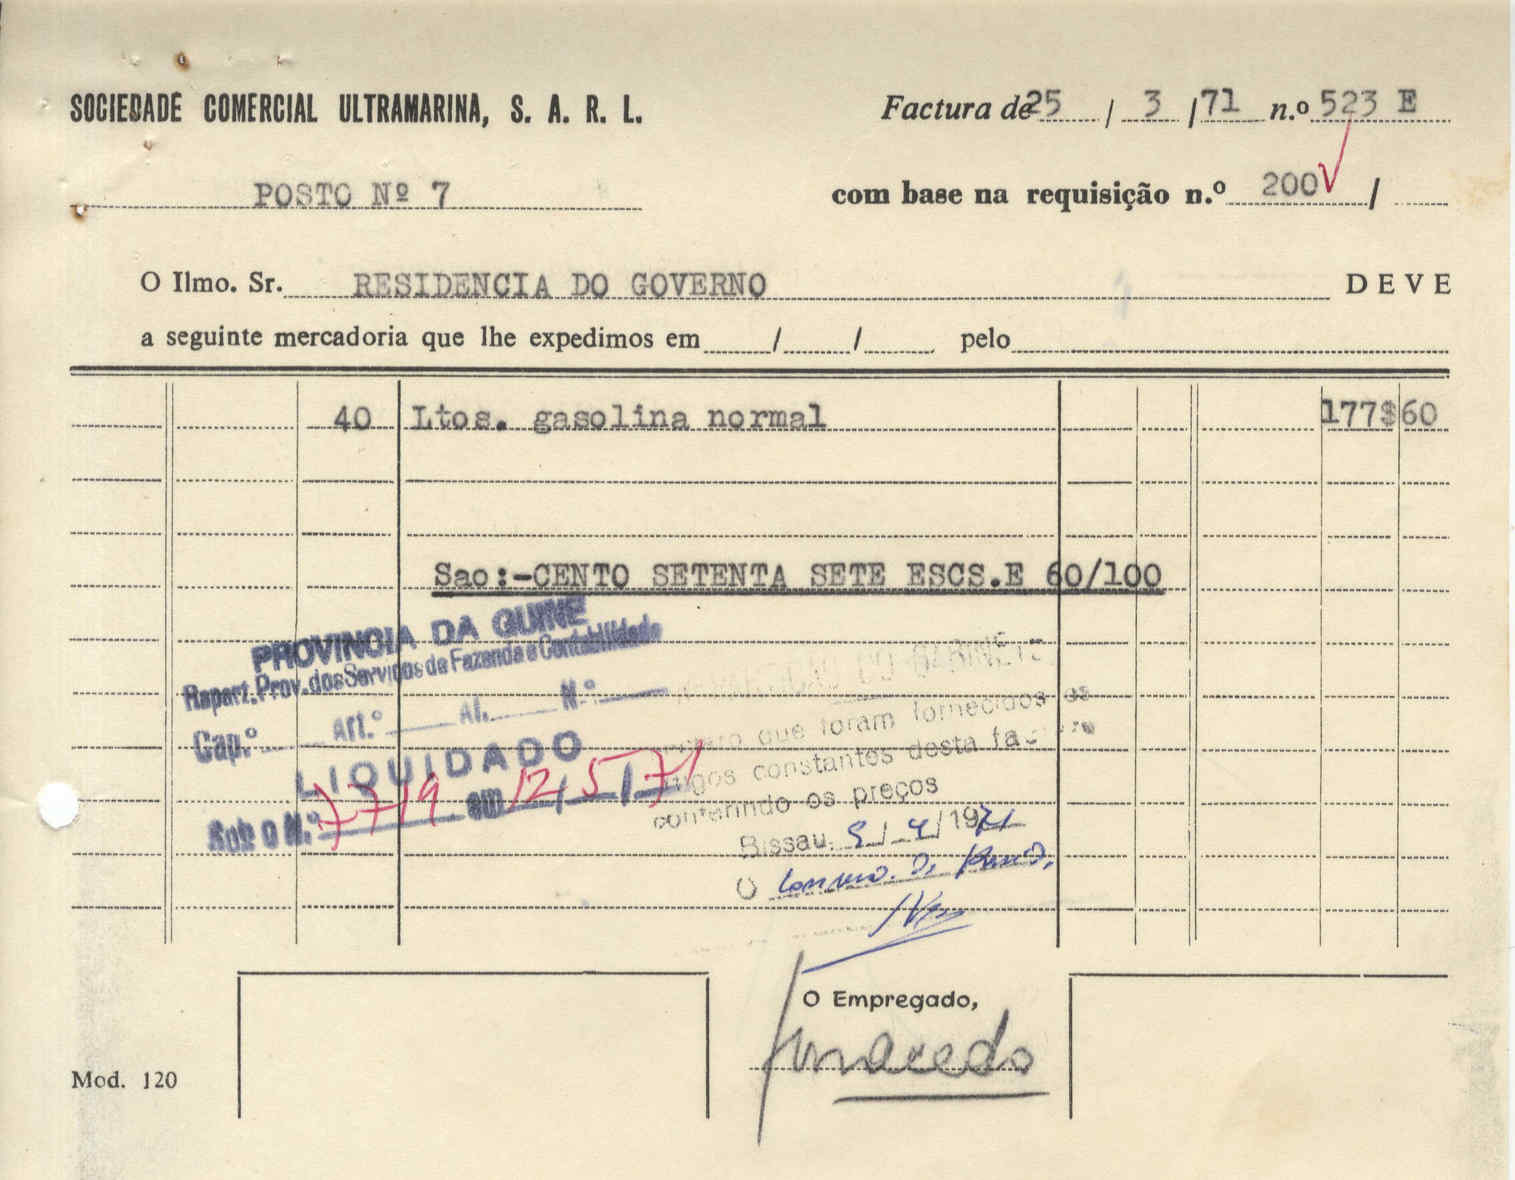 SOCIEDADE COMERCIAL ULTRAMARINA, S. A. R. L.
Factura de 25 / 3 / 71 n.º 523 E
POSTO Nº 7
com base na requisição n.º 200 /
O Ilmo. Sr. RESIDENCIA DO GOVERNO DEVE
a seguinte mercadoria que lhe expedimos em / / pelo
40 Ltos. gasolina normal 177$60
Sao:-CENTO SETENTA SETE ESCS.E 60/100
PROVINCIA DA GUINE
Repart. Prov. dos Serviços de Fazenda e Contabilidade
Cap.º Art.º Al. N.º
LIQUIDADO
Sob o N.º 7719 em 12/5/71
DO GABINETE
que foram fornecidos os
artigos constantes desta factura
conferindo os preços
Bissau, 5/4/1971
O
O Empregado,
Mod. 120